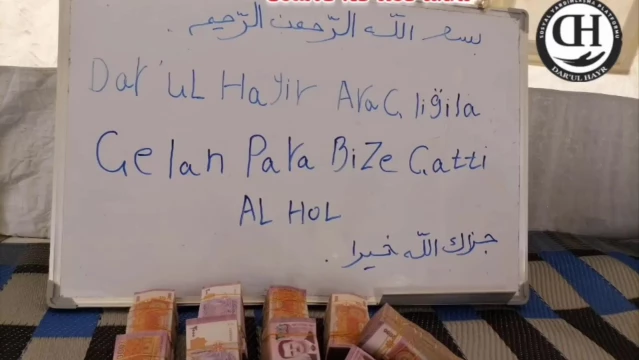 بسم الله الرحمن الرحيم .
Dar'uL Hayir AraÇ liğila
Gelan Para BiZe Çatti
AL HOL
جزاك الله خيرا .
SOSYAL YARDIMLAŞMA PLATFORMU
DH
DAR'UL HAYR